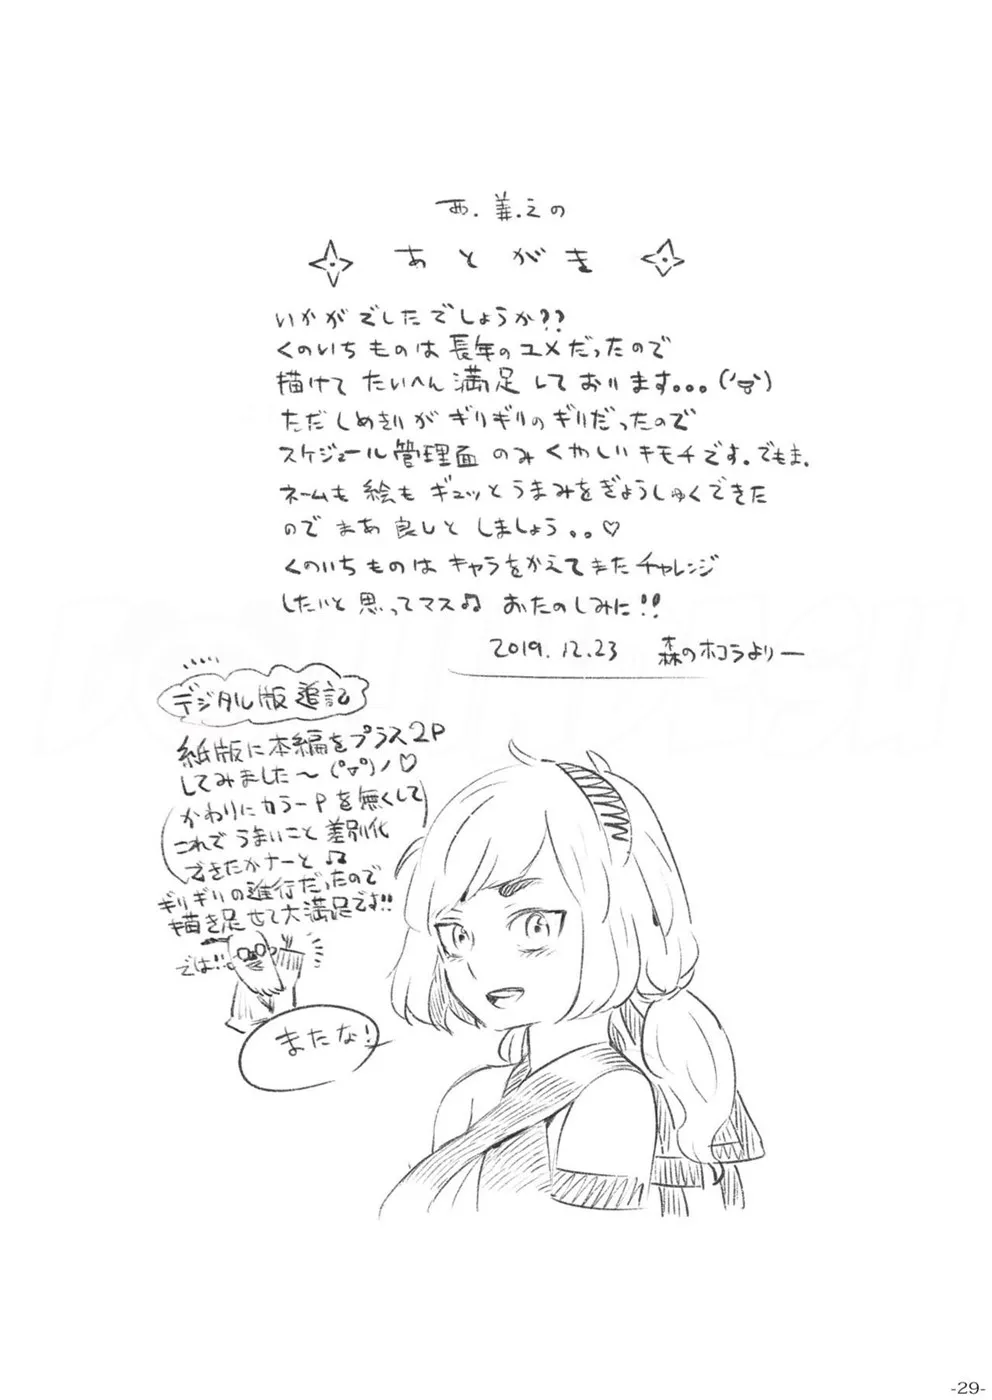 西.義.之の
あとがき
いかがでしたでしょうか??
くのいちものは長年のユメだったので
描けてたいへん満足しております。。。
ただしめきりがギリギリのギリだったので
スケジュール管理面のみくやしいキモチです。でもま、
ネームも絵もギュッとうまみをぎょうしゅくできた
のでまあ良しとしましょう。。♡
くのいちものはキャラをかえてまたチャレンジ
したいと思ってマス♫ おたのしみに!!
2019.12.23 森のホコラよりー
デジタル版追記
紙版に本編をプラス2P
してみました〜 (°▽°)ノ♡
(かわりにカラーPを無くして
これでうまいこと差別化
できたかナーと♫)
ギリギリの進行だったので
描き足せて大満足です!!
では!!
またな!
-29-